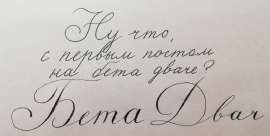 Ну что,
с первым постом
на бета дваче?
Бета Двач